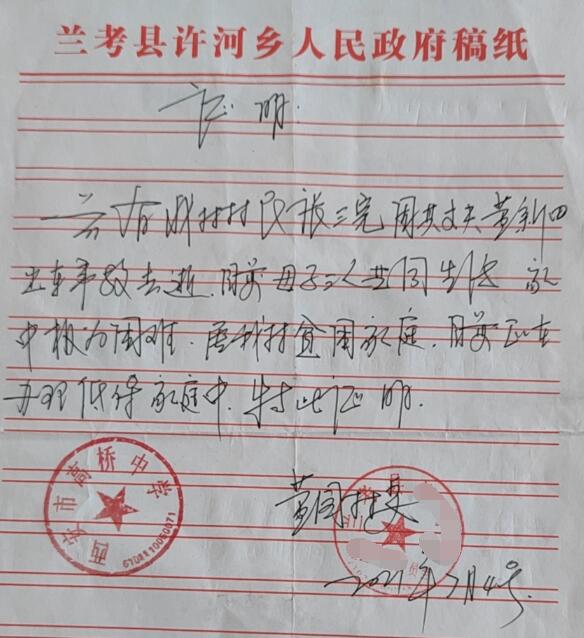 兰考县许河乡人民政府稿纸
证明
兹有我村村民张三完因其丈夫黄新四
出车事故去逝.目前母子二人共同生活 家
中极为困难.属我村贫困家庭.目前正在
办理低保家庭中.特此证明.
西安市高桥中学
6704110050071
黄周村委
2021年7月4号